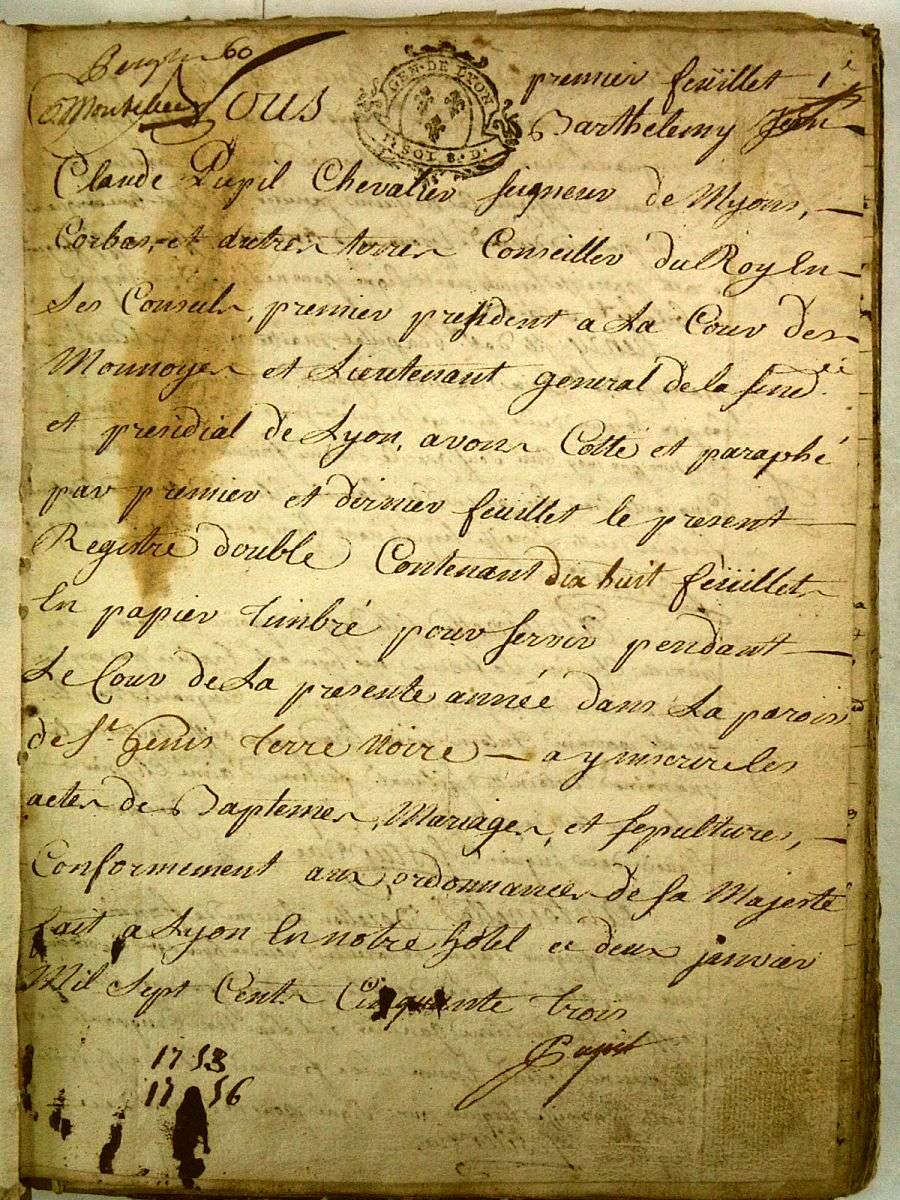 60
premier feüillet 1.e
GEN. DE LYON
Nous Barthelemy Jean
Claude Pupil Chevalier seigneur de Myons,
Corbas, et autres terres Conseiller du Roy En
Ses Conseils, premier president a La Cour des
Monnoyes et Lieutenant general de la Sened.ée
et presidial de Lyon, avons Cotté et paraphé
par premier et dernier feüillet le present
Registre double Contenant dix huit feüillets
En papier timbré pour servir pendant
Le Cour de La presente année dans La parois
de S.t Genis terre Noire – a y inscrire les
actes de Baptemes, Mariages, et sepultures,
Conformement aux ordonnances de sa Majesté
fait a Lyon En notre hôtel ce deux janvier
Mil Sept Cents Cinquante trois
Pupil
1753
1756